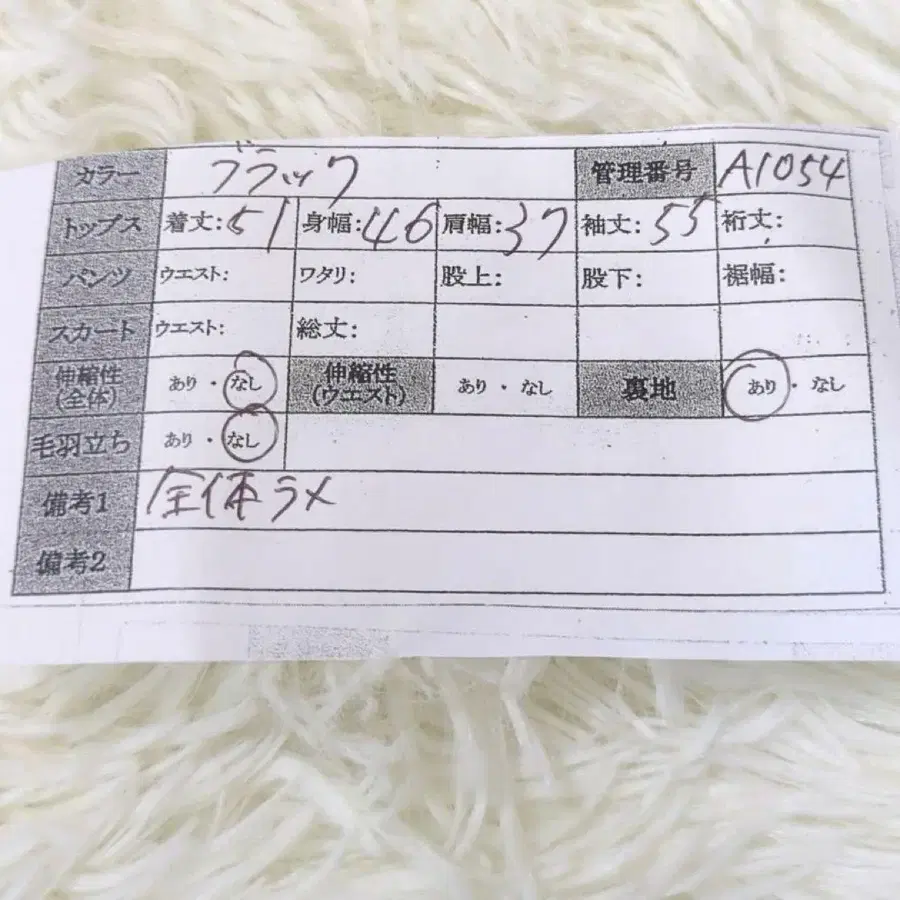 カラー ブラック 管理番号 A1054
トップス 着丈:51 身幅:46 肩幅:37 袖丈:55 裄丈:
パンツ ウエスト: ワタリ: 股上: 股下: 裾幅:
スカート ウエスト: 総丈:
伸縮性 (全体) あり・なし 伸縮性 (ウエスト) あり・なし 裏地 あり・なし
毛羽立ち あり・なし
備考1 全体ラメ
備考2